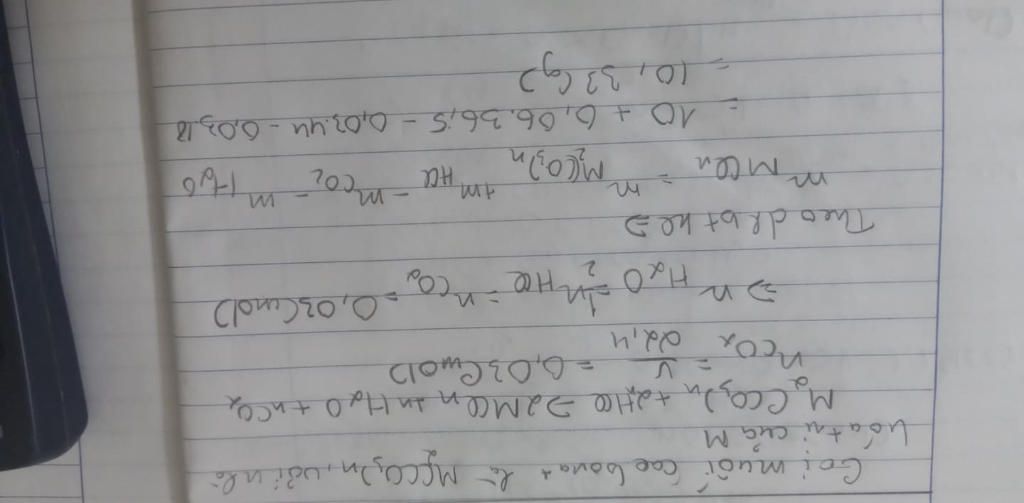 Gọi muối cacbonat là M₂(CO₃)n, với n là
hóa trị của M
M₂(CO₃)n + 2HCl => 2MCln + nH₂O + nCO₂
nCO₂ = V/22,4 = 0,03(mol)
=> nH₂O = 1/2 nHCl = nCO₂ = 0,03(mol)
Theo dl bt kl =>
mMCln = mM₂(CO₃)n + mHCl - mCO₂ - mH₂O
= 10 + 0,06.36,5 - 0,03.44 - 0,03.18
= 10,33(g)